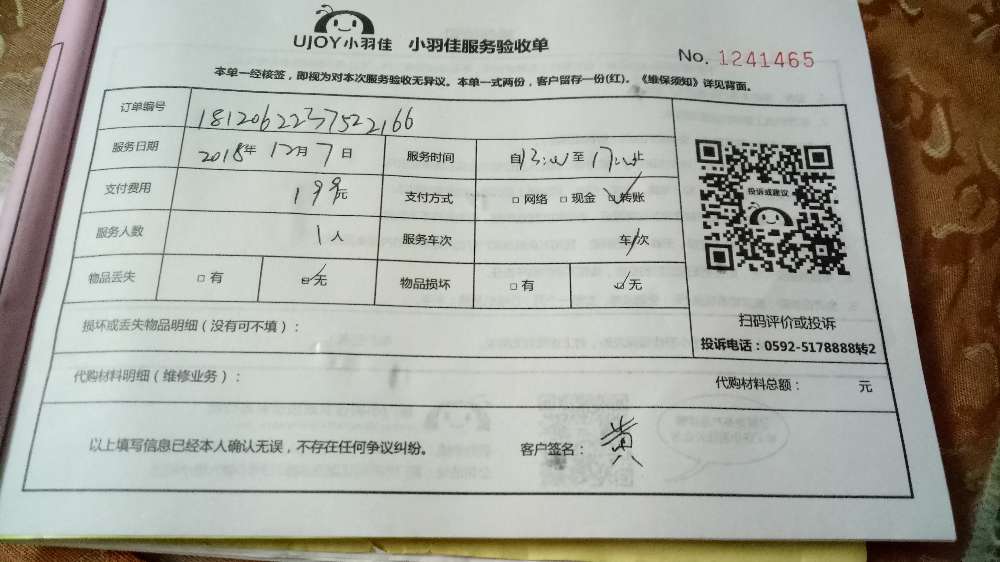 UJOY小羽佳 小羽佳服务验收单
No. 1241465
本单一经核签，即视为对本次服务验收无异议。本单一式两份，客户留存一份(红)。《维保须知》详见背面。
订单编号 1812062237522166
服务日期 2018年 12月 7日 服务时间 自13:00至17:00止
支付费用 199元 支付方式 □网络 □现金 ☑转账
服务人数 1人 服务车次 车/次
物品丢失 □有 ☑无 物品损坏 □有 ☑无
损坏或丢失物品明细（没有可不填）：
代购材料明细（维修业务）： 代购材料总额： 元
以上填写信息已经本人确认无误，不存在任何争议纠纷。 客户签名：黄
投诉或建议
扫码评价或投诉
投诉电话：0592-5178888转2